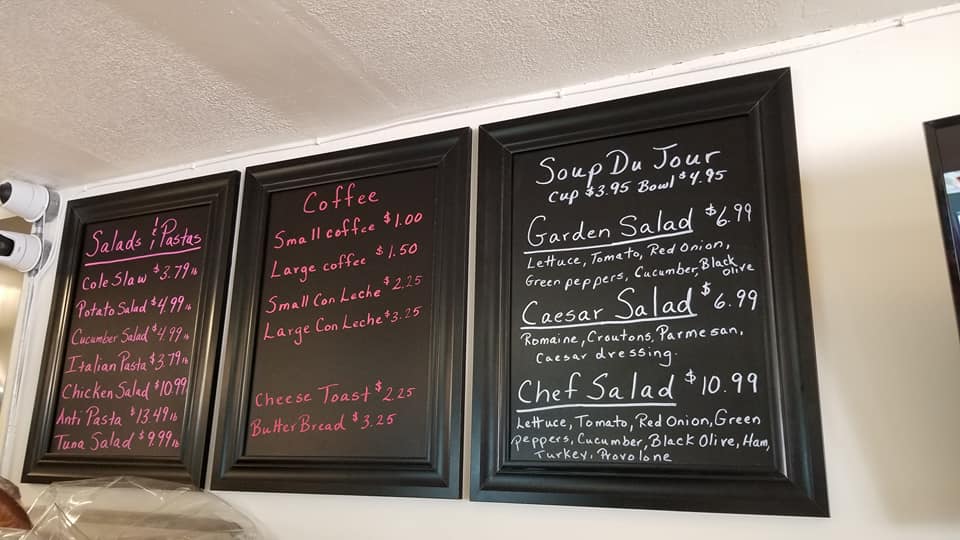 Salads & Pastas
Cole Slaw $3.79 lb
Potato Salad $4.99 lb
Cucumber Salad $4.99 lb
Italian Pasta $3.79 lb
Chicken Salad $10.99
Anti Pasta $13.49 lb
Tuna Salad $9.99 lb
Coffee
Small coffee $1.00
Large coffee $1.50
Small Con Leche $2.25
Large Con Leche $3.25
Cheese Toast $2.25
Butter Bread $3.25
Soup Du Jour
Cup $3.95 Bowl $4.95
Garden Salad $6.99
Lettuce, Tomato, Red Onion,
Green peppers, Cucumber, Black
Olive
Caesar Salad $6.99
Romaine, Croutons, Parmesan,
Caesar dressing.
Chef Salad $10.99
Lettuce, Tomato, Red Onion, Green
peppers, Cucumber, Black Olive, Ham,
Turkey, Provolone